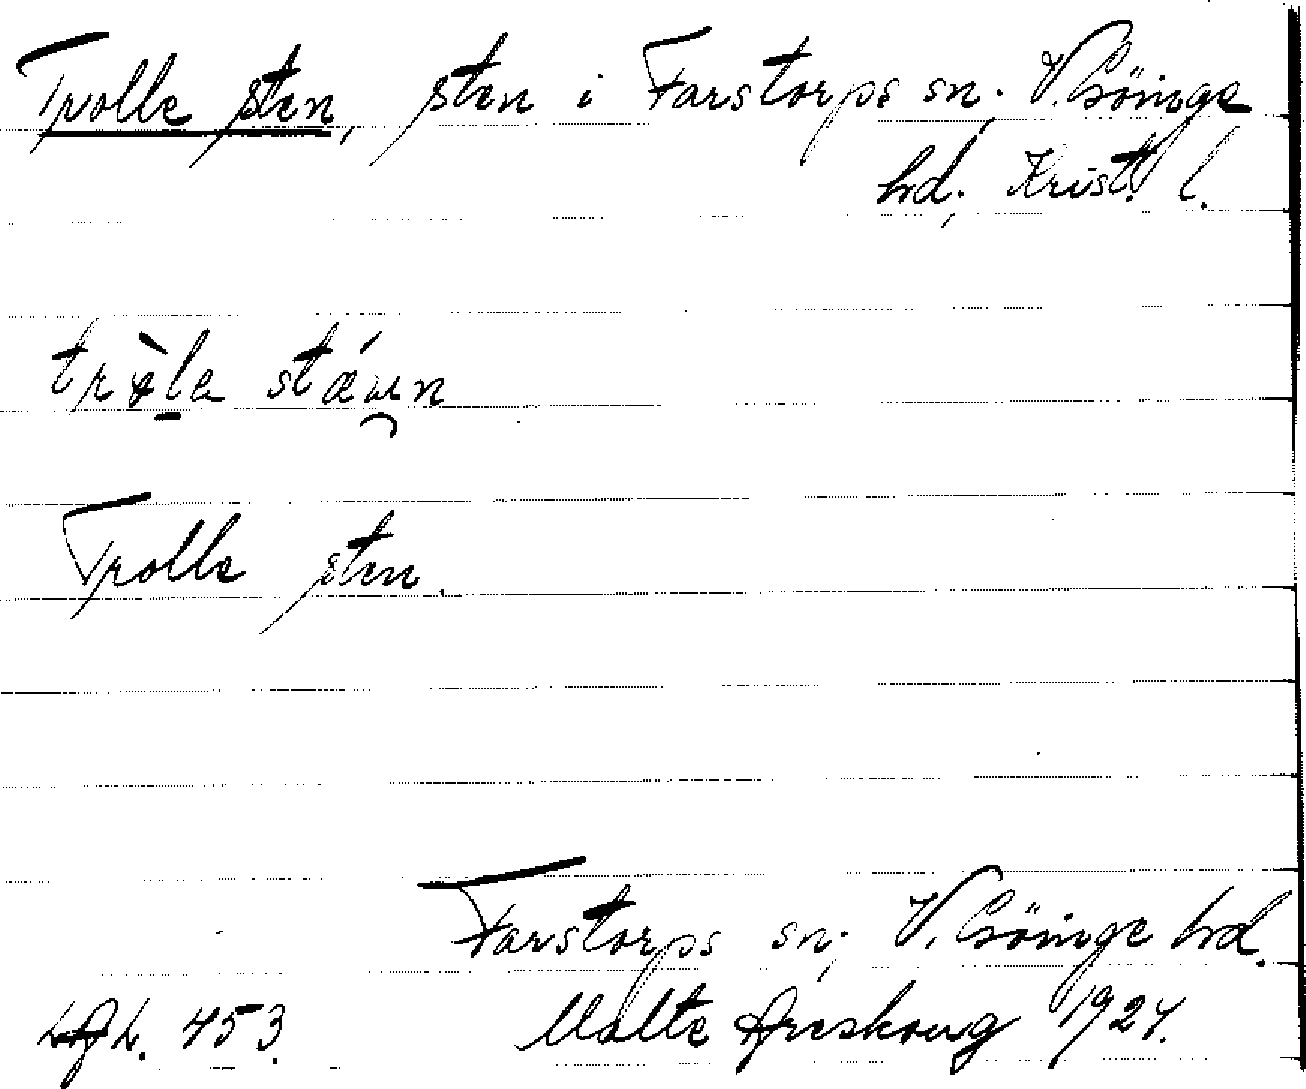 Trolle sten, sten i Farstorps sn. V. Göinge
hd; Krist. l.
tròla stǽu̯n
Trolle sten.
Farstorps sn; V. Göinge hd.
453. Malte Areskoug 1924.